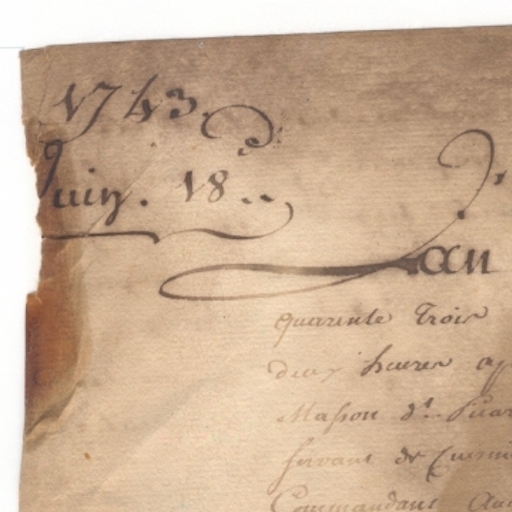 1743.
Juin. 18..
Lan
quarente Trois
deux heures ap
Masson dt.
servant de
Commandant